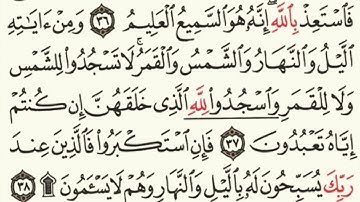 فَٱسْتَعِذْ بِٱللَّهِۖ إِنَّهُۥ هُوَ ٱلسَّمِيعُ ٱلْعَلِيمُ ٣٦ وَمِنْ ءَايَٰتِهِ
ٱلَّيْلُ وَٱلنَّهَارُ وَٱلشَّمْسُ وَٱلْقَمَرُۚ لَا تَسْجُدُوا۟ لِلشَّمْسِ
وَلَا لِلْقَمَرِ وَٱسْجُدُوا۟ لِلَّهِ ٱلَّذِى خَلَقَهُنَّ إِن كُنتُمْ
إِيَّاهُ تَعْبُدُونَ ٣٧ فَإِنِ ٱسْتَكْبَرُوا۟ فَٱلَّذِينَ عِندَ
رَبِّكَ يُسَبِّحُونَ لَهُۥ بِٱلَّيْلِ وَٱلنَّهَارِ وَهُمْ لَا يَسْـَٔمُونَ ۩ ٣٨